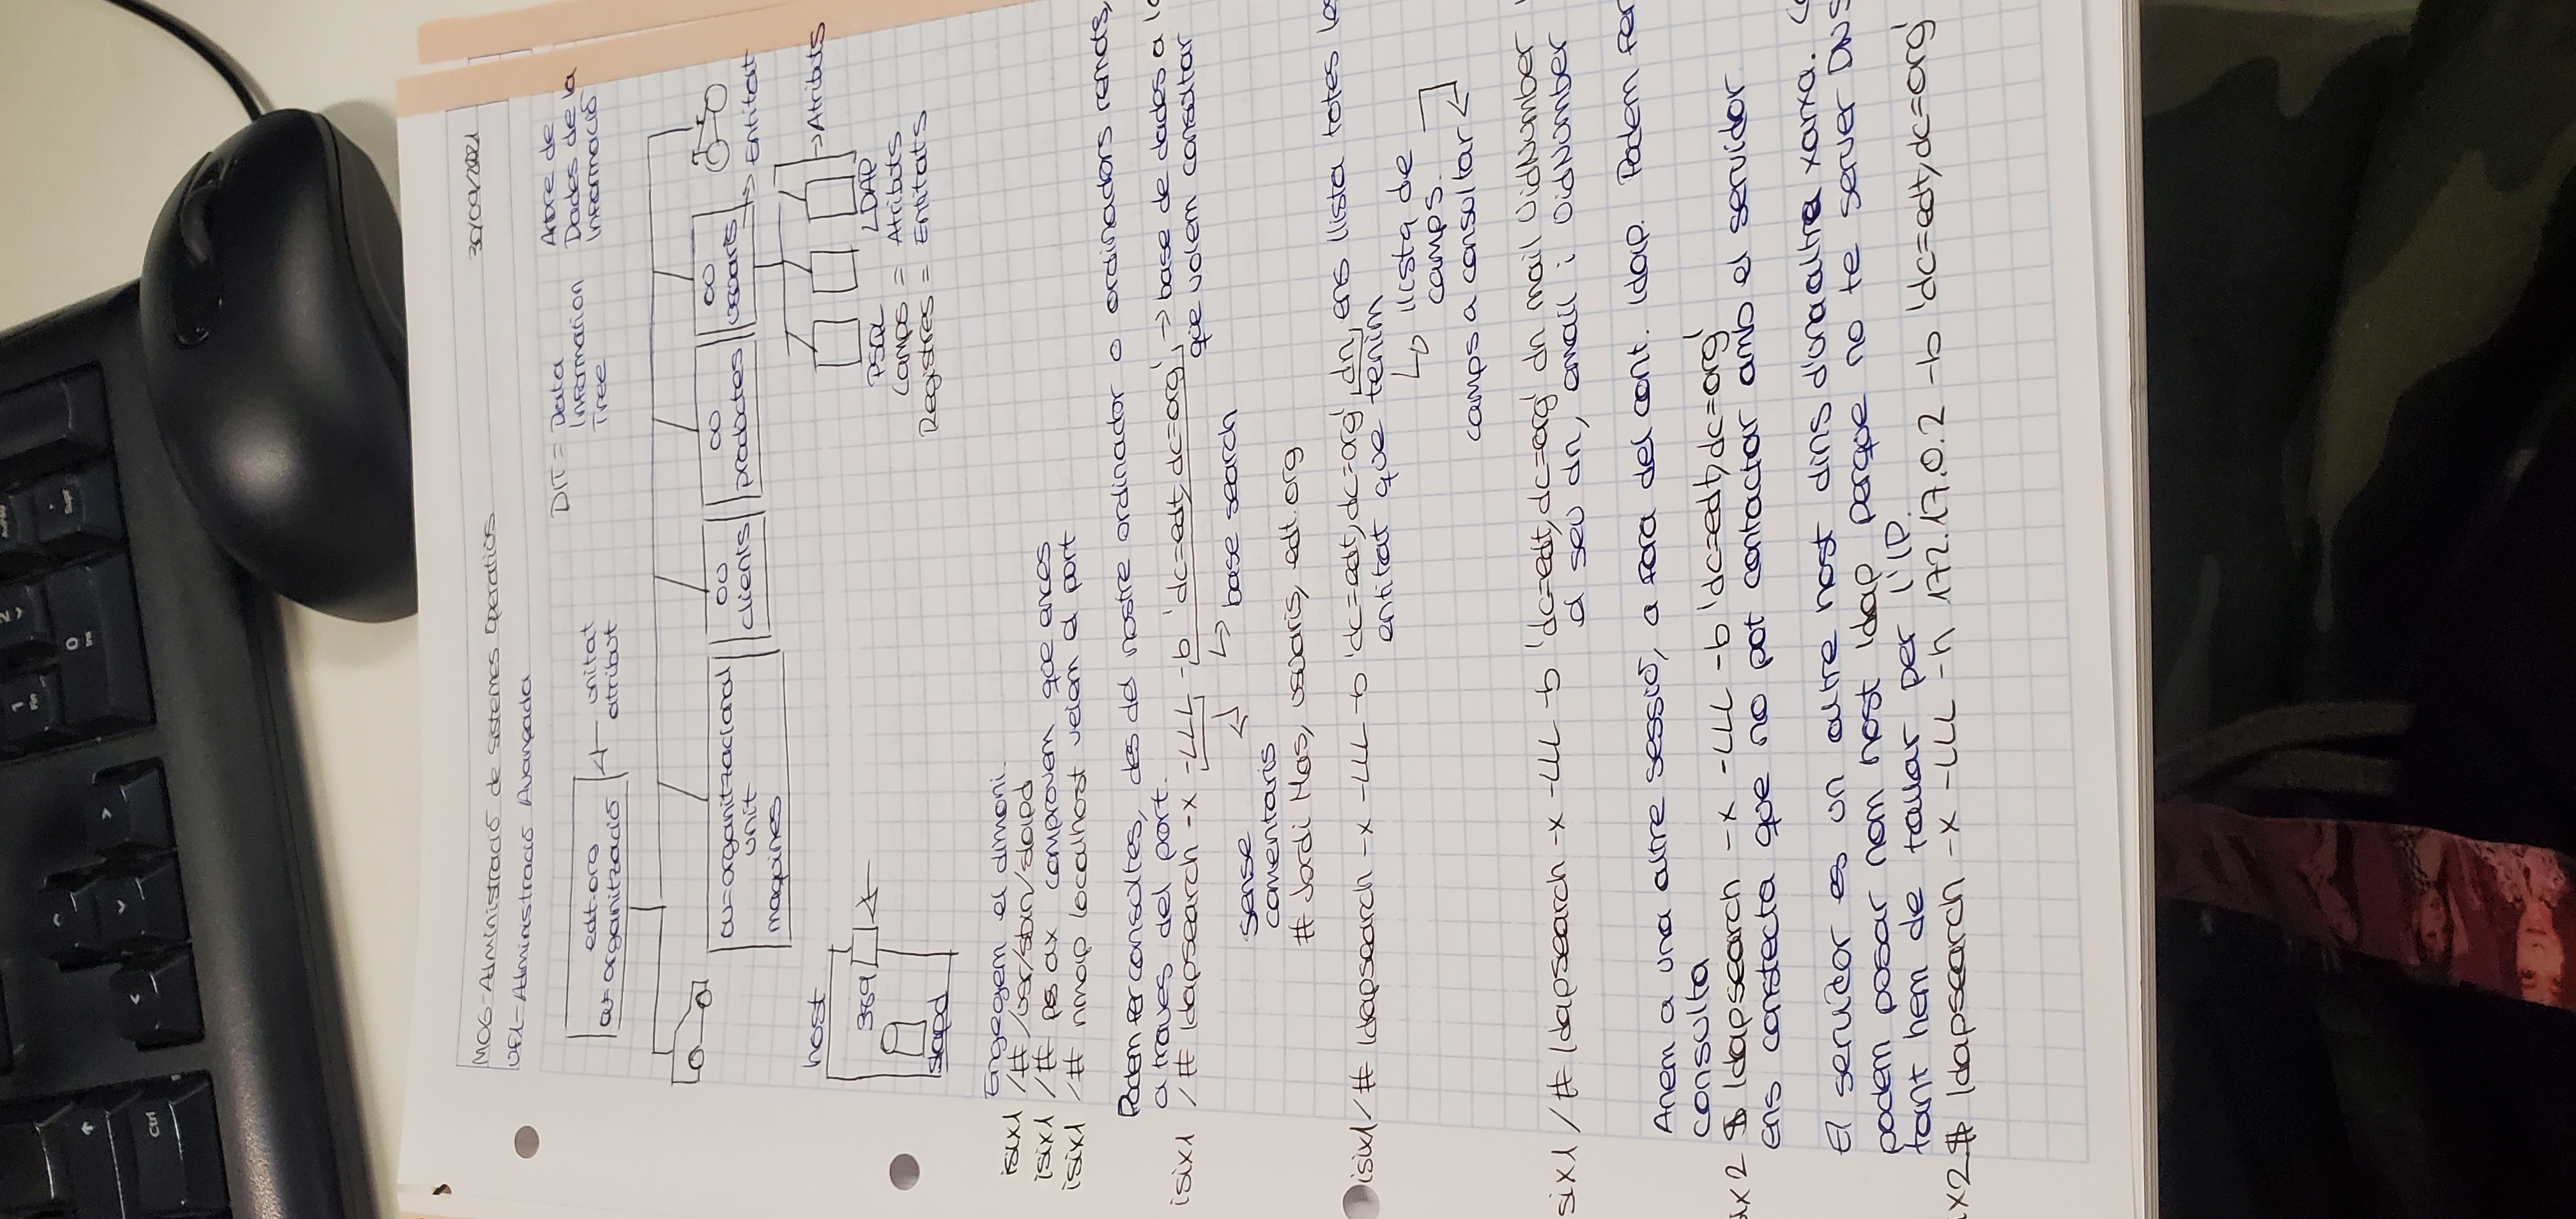 Ctrl
1
Fin
2
0
Ins
.
Supr
M06-Administració de Sistemes Operatius
30/09/2021
UF1-Administració Avançada
DIT = Data
Information
Tree
Arbre de
Dades de la
Informació
edt.org
o=organització
unitat
atribut
ou=organitzacional
unit
maquines
ou
clients
ou
productes
ou
usuaris
Entitat
Atributs
host
389
slapd
PSQL LDAP
Camps = Atributs
Registres = Entitats
Engegem el dimoni.
isix1 /# /usr/sbin/slapd
isix1 /# ps ax comprovem que ences
isix1 /# nmap localhost veiem el port
Podem fer consultes, des del nostre ordinador o ordinadors remots,
a traves del port.
isix1 /# ldapsearch -x -LLL -b 'dc=edt,dc=org', → base de dades a la
que volem consultar
base search
sense
comentaris
# Jordi Mas, usuaris, edt.org
isix1/# ldapsearch -x -LLL -b 'dc=edt,dc=org', dn, ens llista totes les
entitat que tenim
llista de
camps.
camps a consultar
six1 /# ldapsearch -x -LLL -b 'dc=edt,dc=org' dn mail UidNumber
el seu dn, email i UidNumber
Anem a una altre sessió, a fora del cont. ldap. Podem fer
consulta
ix2 $ ldapsearch -x -LLL -b 'dc=edt,dc=org'
ens constecta que no pot contactar amb el servidor
El servidor es un altre host dins d'una altra xarxa.
podem posar nom host ldap perque no te server DNS
tant hem de tallar per l'IP.
ix2 $ ldapsearch -x -LLL -h 172.17.0.2 -b 'dc=edt,dc=org'